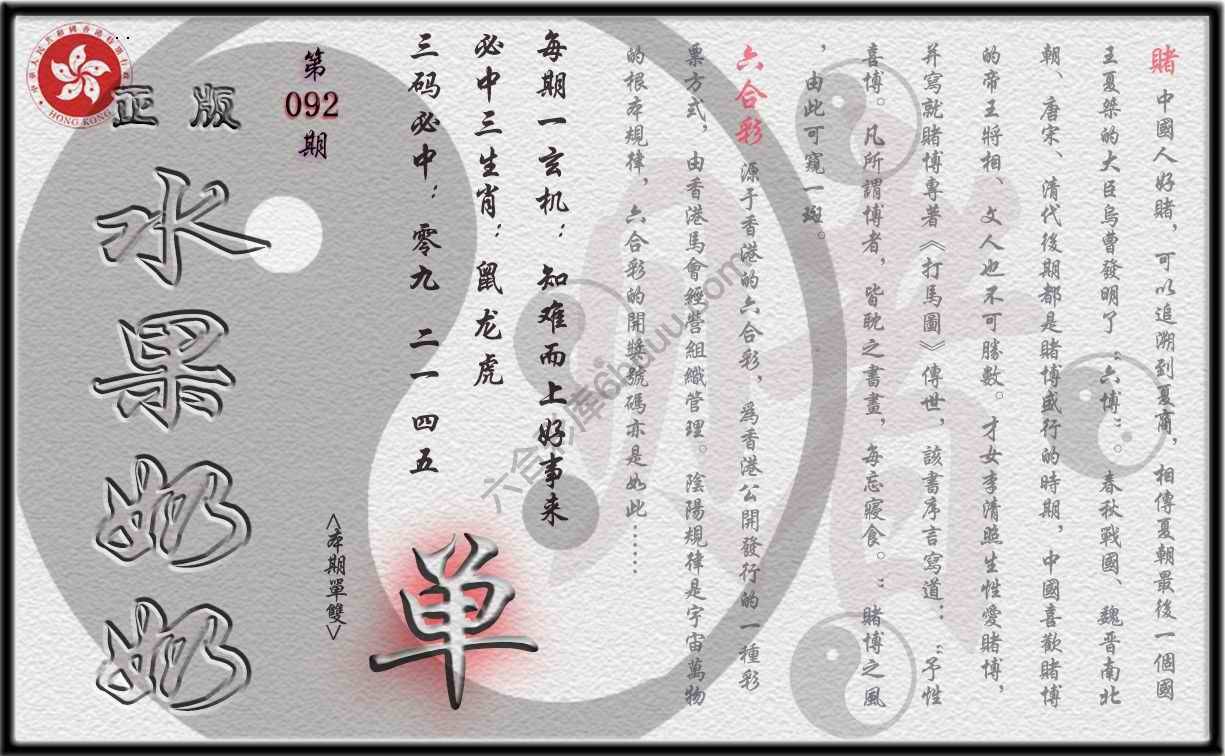 賭 中國人好賭，可以追溯到夏商，相傳夏朝最後一個國
王夏桀的大臣烏曹發明了“六博”。春秋戰國、魏晉南北
朝、唐宋、清代後期都是賭博盛行的時期，中國喜歡賭博
的帝王將相、文人也不可勝數。才女李清照生性愛賭博，
并寫就賭博專著《打馬圖》傳世，該書序言寫道：“予性
喜博。凡所謂博者，皆耽之書畫，每忘寢食。”賭博之風
，由此可窺一斑。
六合彩 源于香港的六合彩，爲香港公開發行的一種彩
票方式，由香港馬會經營組織管理。陰陽規律是宇宙萬物
的根本規律，六合彩的開獎號碼亦是如此……
每期一玄机：知难而上好事来
必中三生肖：鼠龙虎
三码必中：零九 二一 四五
单
<本期單雙>
第
092
期
正版
水果奶奶
HONG KONG
六合彩库6hduu.com